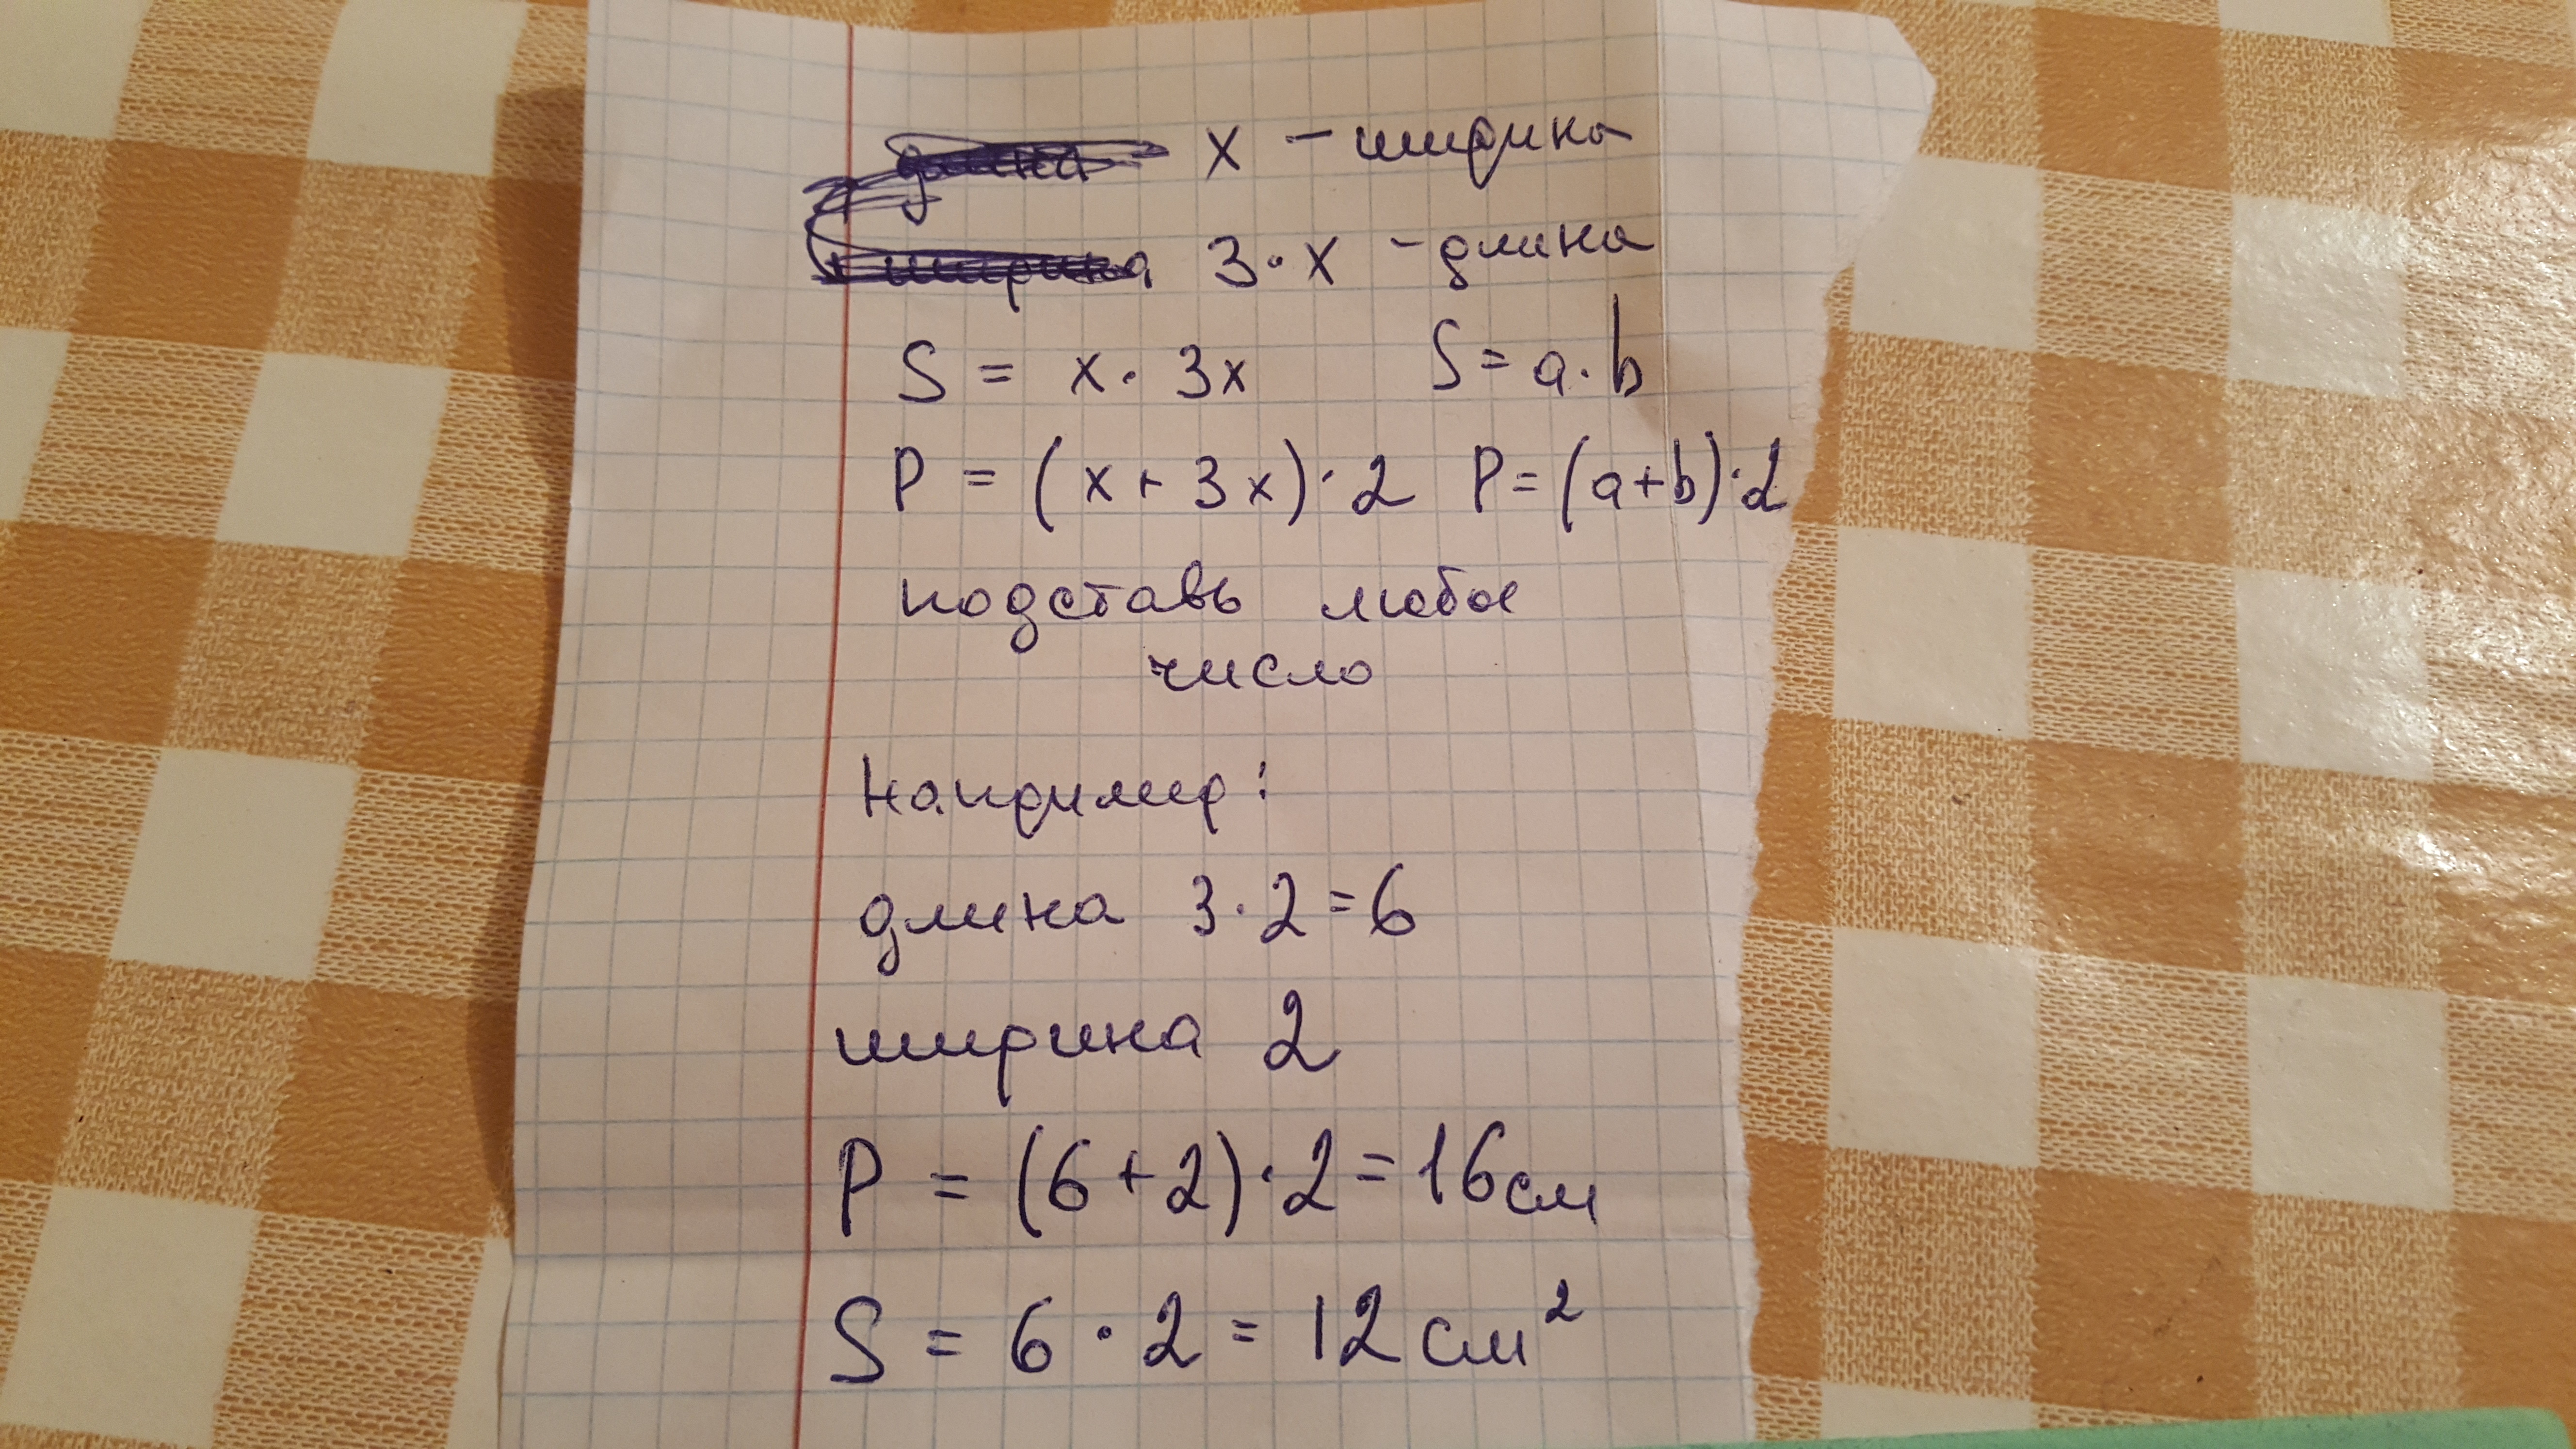 х - ширина
3·х - длина
S = x · 3x S = a · b
P = (x + 3x) · 2 P = (a+b) · 2
подставь любое
число
Например:
длина 3 · 2 = 6
ширина 2
P = (6 + 2) · 2 = 16 см
S = 6 · 2 = 12 см²